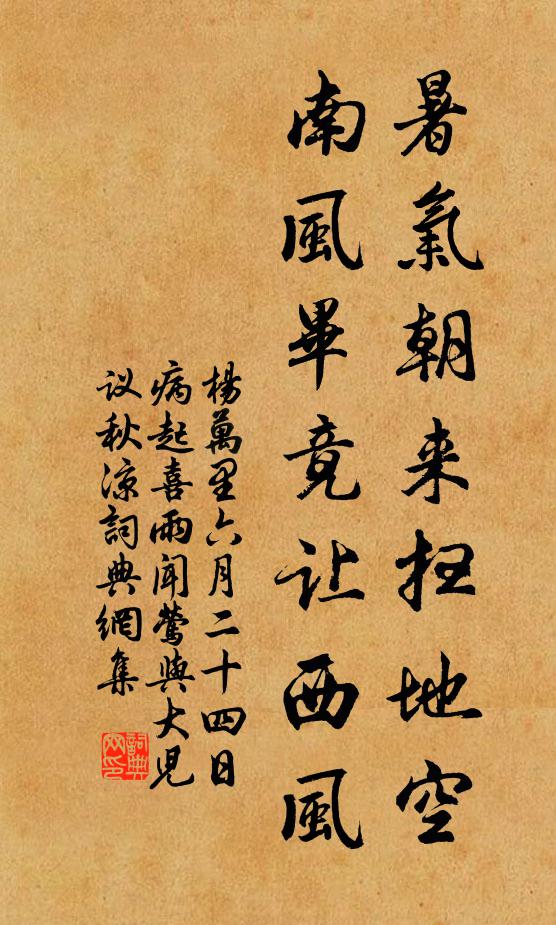 暑氣朝来扫地空
南風畢竟让西風
楊萬里六月二十四日
病起喜雨闻鶯與大児
议秋凉詞典網集
詞典
网印